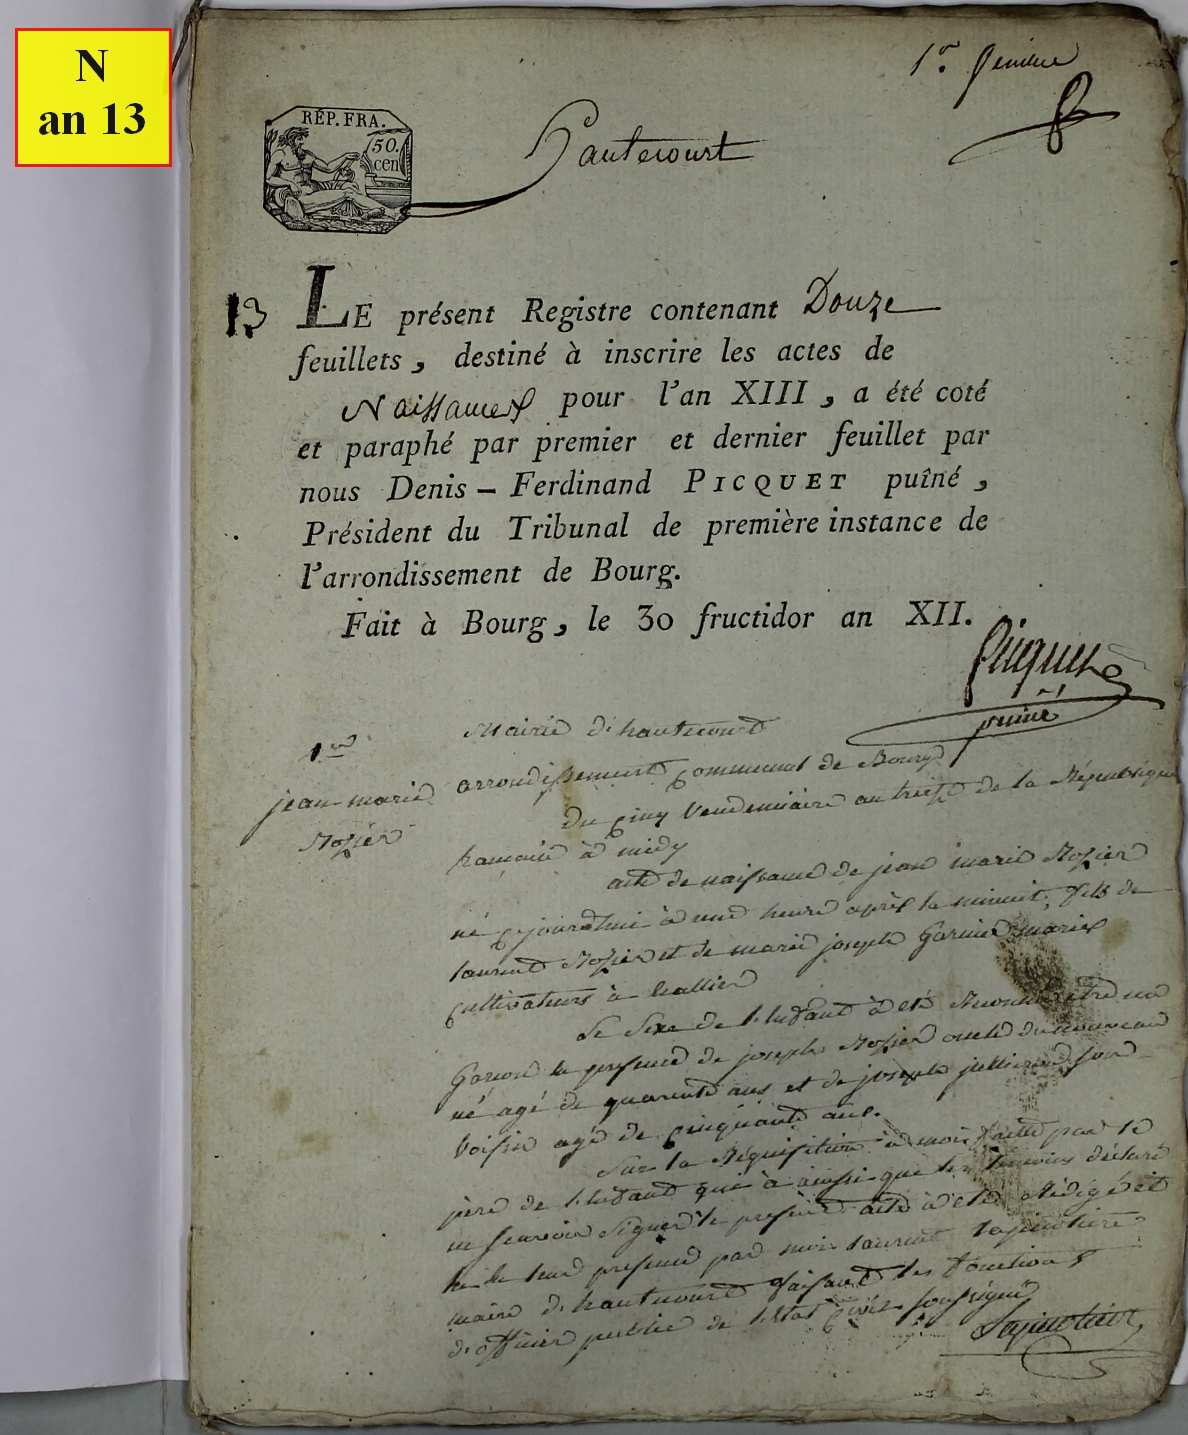 N
an 13
1er
RÉP. FRA.
50.
cen
hautecourt
13
LE présent Registre contenant Douze
feuillets, destiné à inscrire les actes de
Naissances pour l'an XIII, a été coté
et paraphé par premier et dernier feuillet par
nous Denis - Ferdinand PICQUET puîné,
Président du Tribunal de première instance de
l'arrondissement de Bourg.
Fait à Bourg, le 30 fructidor an XII.
Picquet
puiné
1er
jean marie
Mozier
Mairie d'hautecourt
arrondissement Communal de Bourg
du Cinq Vendemiaire an treize de la République
francaise à midy
acte de naissance de jean marie Mozier
né Cejourdhui à une heure après le minuit, fils de
laurent Mozier et de marie joseph Garnier mariés
Cultivateurs à hallier
Le Sexe de l'Enfant à eté Reconnu etre un
Garcon en presence de joseph Mozier oncle du nouveau
né agé de quarente ans et de joseph jullierand son
Voisin agé de Cinquante ans.
Sur la Requisition à moi faitte par le
père de l'Enfant qui à ainsi que les temoins déclaré
ne scavoir Signer le present acte à eté Rédigé et
lu en leur presence par moi laurent lapierre
maire d'hautecourt faisant les fonctions
d'officier public de l'Etat Civil soussigné